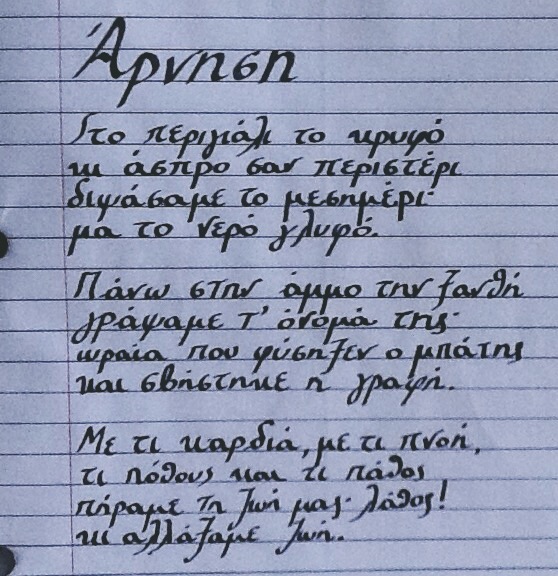 Άρνηση
Στο περιγιάλι το κρυφό
κι άσπρο σαν περιστέρι
διψάσαμε το μεσημέρι·
μα το νερό γλυφό.
Πάνω στην άμμο την ξανθή
γράψαμε τ' όνομά της·
ωραία που φύσηξεν ο μπάτης
και σβήστηκε η γραφή.
Με τι καρδιά, με τι πνοή,
τι πόθους και τι πάθος
πήραμε τη ζωή μας· λάθος!
κι αλλάξαμε ζωή.